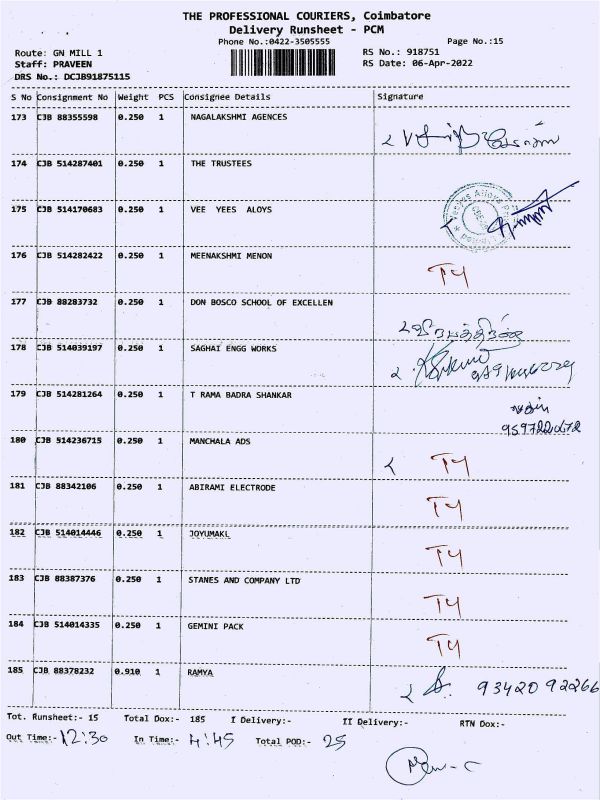 THE PROFESSIONAL COURIERS, Coimbatore
Delivery Runsheet - PCM
Phone No.:0422-3505555 Page No.:15
Route: GN MILL 1 RS No.: 918751
Staff: PRAVEEN RS Date: 06-Apr-2022
DRS No.: DCJB91875115
S No Consignment No Weight PCS Consignee Details Signature
173 CJB 88355598 0.250 1 NAGALAKSHMI AGENCES
174 CJB 514287401 0.250 1 THE TRUSTEES
175 CJB 514170683 0.250 1 VEE YEES ALOYS
176 CJB 514282422 0.250 1 MEENAKSHMI MENON T4
177 CJB 88283732 0.250 1 DON BOSCO SCHOOL OF EXCELLEN
178 CJB 514039197 0.250 1 SAGHAI ENGG WORKS
179 CJB 514281264 0.250 1 T RAMA BADRA SHANKAR
180 CJB 514236715 0.250 1 MANCHALA ADS T4
181 CJB 88342106 0.250 1 ABIRAMI ELECTRODE T4
182 CJB 514014446 0.250 1 JOYUMAKL T4
183 CJB 88387376 0.250 1 STANES AND COMPANY LTD T4
184 CJB 514014335 0.250 1 GEMINI PACK T4
185 CJB 88378232 0.910 1 RAMYA 93420 92266
Tot. Runsheet:- 15 Total Dox:- 185 I Delivery:- II Delivery:- RTN Dox:-
Out Time:- 12:30 In Time:- 4:45 Total POD:- 25